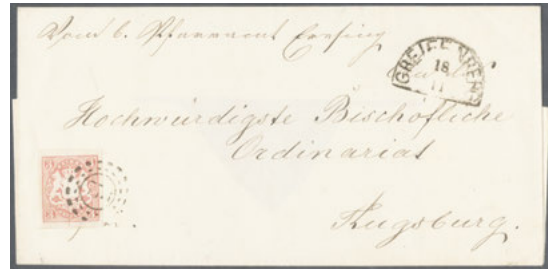 Vom k. Pfarramt Eresing
GREIFENBERG
18
11
Hochwürdigste Bischöfliche
Ordinariat
Augsburg.